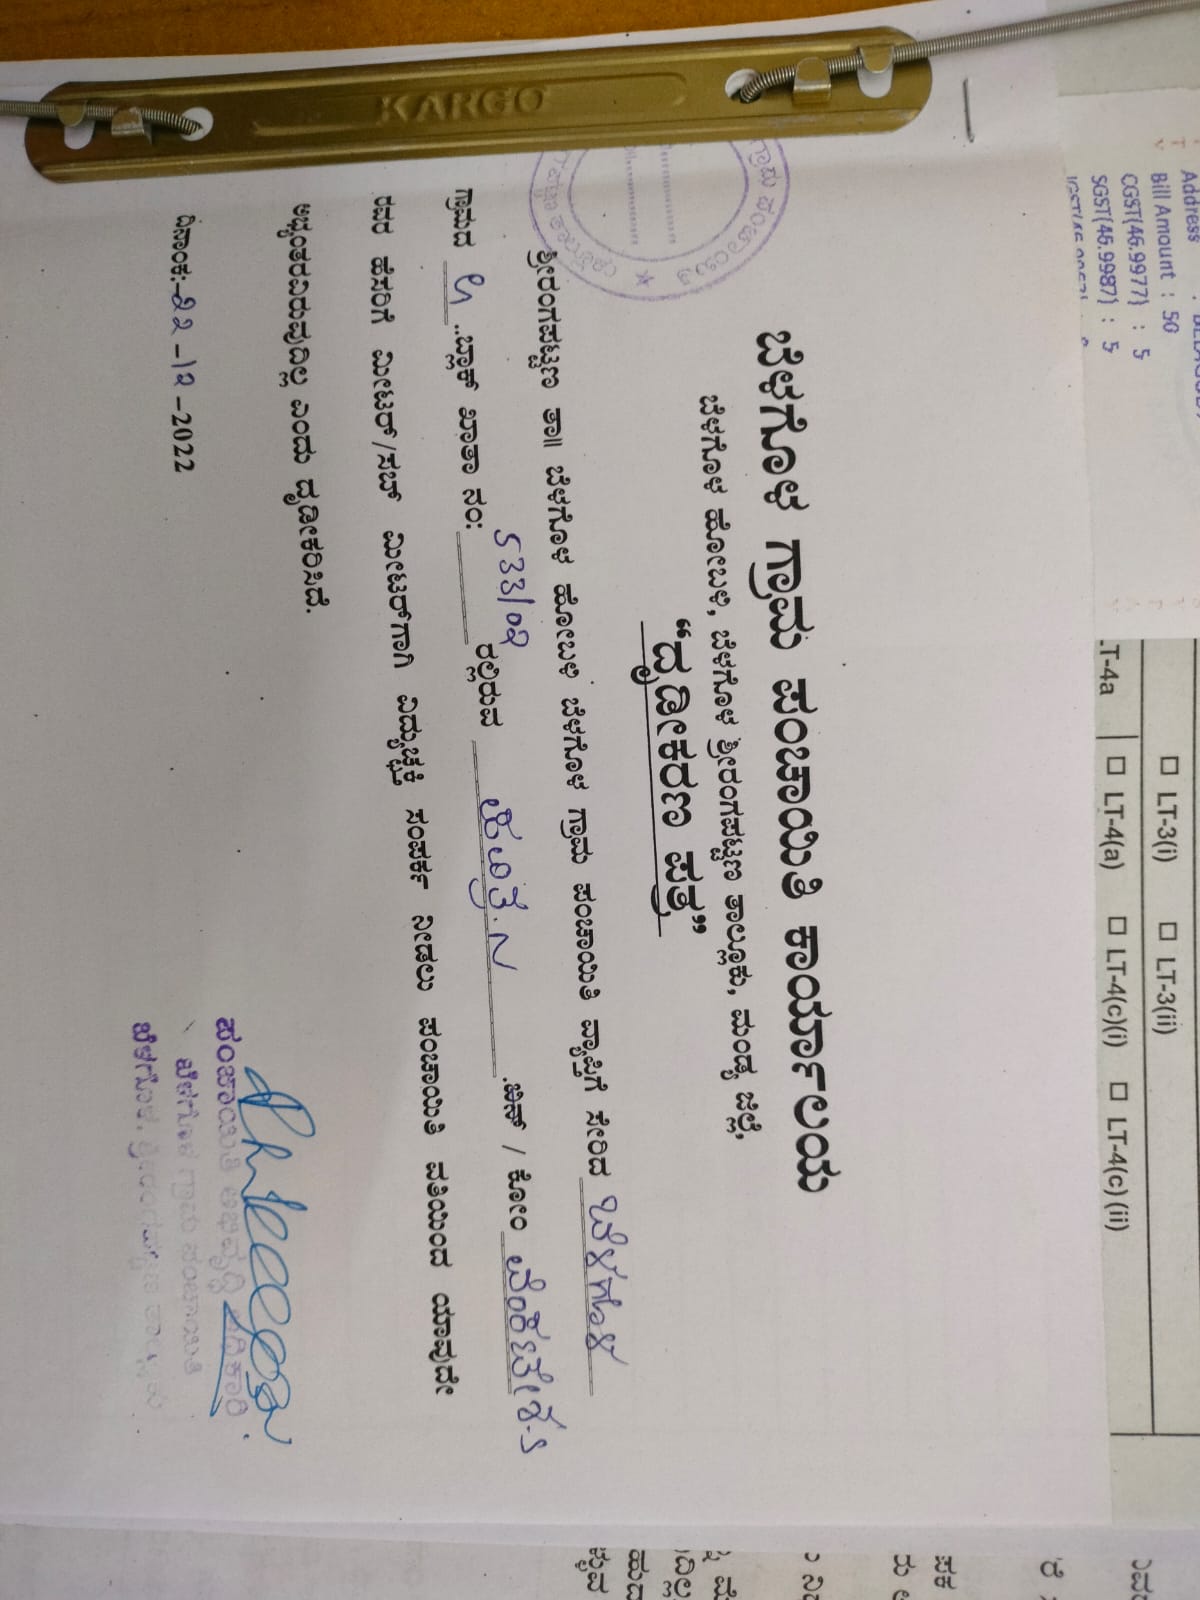 KARGO
ಬೆಳಗೊಳ ಗ್ರಾಮ ಪಂಚಾಯಿತಿ ಕಾರ್ಯಾಲಯ
ಬೆಳಗೊಳ ಹೋಬಳಿ, ಬೆಳಗೊಳ ಶ್ರೀರಂಗಪಟ್ಟಣ ತಾಲ್ಲೂಕು, ಮಂಡ್ಯ ಜಿಲ್ಲೆ,
“ದೃಢೀಕರಣ ಪತ್ರ”
ಶ್ರೀರಂಗಪಟ್ಟಣ ತಾ॥ ಬೆಳಗೊಳ ಹೋಬಳಿ ಬೆಳಗೊಳ ಗ್ರಾಮ ಪಂಚಾಯಿತಿ ವ್ಯಾಪ್ತಿಗೆ ಸೇರಿದ ಬೆಳಗೊಳ
ಗ್ರಾಮದ ..ಬ್ಲಾಕ್ ಖಾತಾ ನಂ: 533/02 ರಲ್ಲಿರುವ .ಬಿನ್ / ಕೋಂ ವೆಂಕಟೇಶ.S
ರವರ ಹೆಸರಿಗೆ ಮೀಟರ್/ಸಬ್ ಮೀಟರ್‌ಗಾಗಿ ವಿದ್ಯುಚ್ಛಕ್ತಿ ಸಂಪರ್ಕ ನೀಡಲು ಪಂಚಾಯಿತಿ ವತಿಯಿಂದ ಯಾವುದೇ
ಅಭ್ಯಂತರವಿರುವುದಿಲ್ಲ ಎಂದು ದೃಢೀಕರಿಸಿದೆ.
ದಿನಾಂಕ:-22-12-2022
ಪಂಚಾಯಿತಿ ಅಭಿವೃದ್ಧಿ ಅಧಿಕಾರಿ
ಬೆಳಗೊಳ ಗ್ರಾಮ ಪಂಚಾಯಿತಿ
ಬೆಳಗೊಳ, ಶ್ರೀರಂಗಪಟ್ಟಣ ತಾಲ್ಲೂಕು
Address
Bill Amount : 50
CGST(46.9977) : 5
SGST(46.9987) : 5
LT-3(i) LT-3(ii)
LT-4(a) LT-4(c)(i) LT-4(c)(ii)